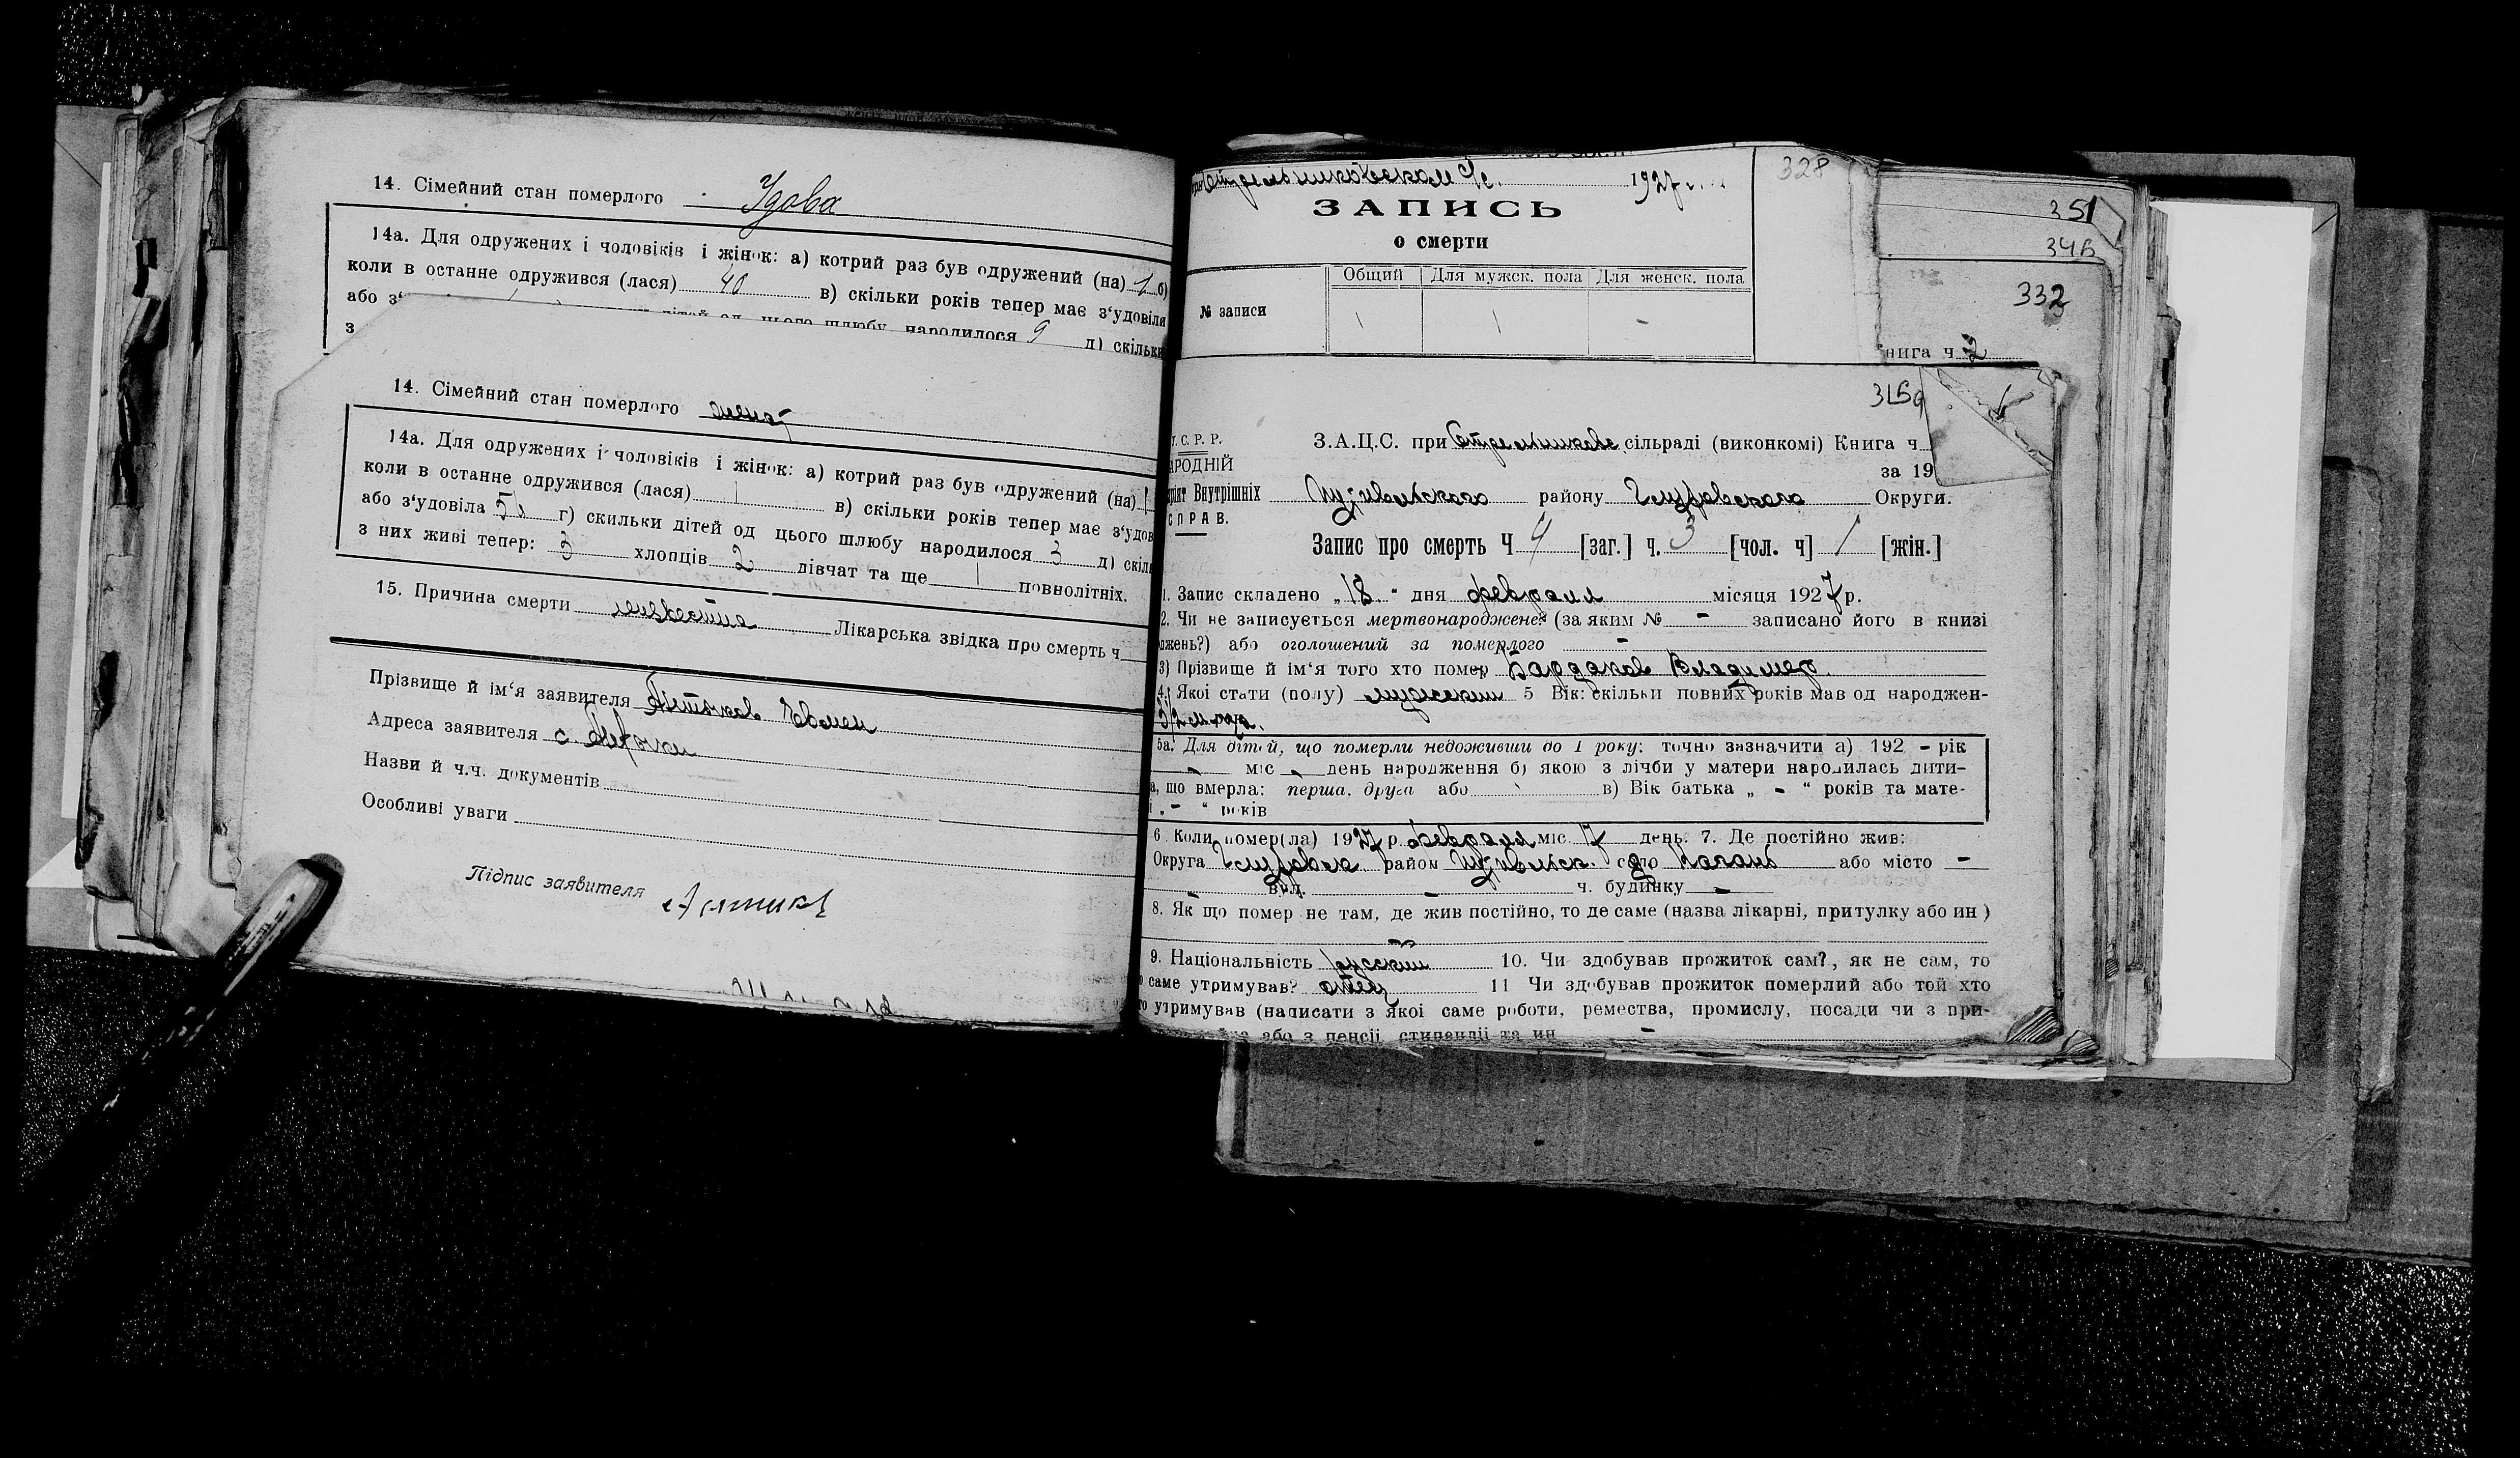 14. Сімейний стан померлого Удова
14а. Для одружених і чоловіків і жінок: а) котрий раз був одружений (на) 1 б)
коли в останне одружився (лася) 40 в) скільки років тепер має з‘удовіла
або з‘
дітей од цього шлюбу народилося 9 д) скільки
з
14. Сімейний стан померлого женат
14а. Для одружених і чоловіків і жінок: а) котрий раз був одружений (на) 1
коли в останне одружився (лася) 1 в) скільки років тепер має з‘удов
або з‘удовіла г) скильки дітей од цього шлюбу народилося 3 д) скіль
з них живі тепер: 3 хлопців 2 дівчат та ще 1 повнолітніх.
15. Причина смерти Лікарська звідка про смерть ч
Прізвище й ім‘я заявителя
Адреса заявителя с.
Назви й ч.ч. документів
Особливі уваги
Підпис заявителя
Стрельниковском с/с. 1927
328
ЗАПИСЬ
о смерти
Общий Для мужск. пола Для женск. пола
№ записи 1 1 -
351
346
332
нига ч. 2
315а
У. С. Р. Р.
З.А.Ц.С. при Стрельников сільраді (виконкомі) Книга ч.
АРОДНІЙ
за 19
ріят Внутрішніх
Путивльского району Глуховского Округи.
СПРАВ.
Запис про смерть Ч 4 [заг.] ч. 3 [чол. ч] 1 [жін.]
1. Запис складено „18“ дня февраля місяця 1927 р.
2. Чи не записується мертвонароджене? (за яким № - записано його в книзі
джень?) або оголошений за померлого -
3) Прізвище й ім‘я того хто помер Бардаков Владимер.
4. Якої стати (полу) мужской 5 Вік: скільки повних років мав од народжен-
5а. Для дітей, що померли недоживши до 1 року: точно зазначити а) 192 - рік
- міс - день народження б) якою з лічби у матери народилась дити-
а, що вмерла: перша, друга або в) Вік батька „ - “ років та мате-
і „ - “ років
6 Коли помер(ла) 1927 р. февраля міс. 17 день. 7. Де постійно жив:
Округа Глуховск район Путивльск. село або місто -
- вул. - ч. будинку -
8. Як що помер не там, де жив постійно, то де саме (назва лікарні, притулку або ин )
9. Національність русский 10. Чи здобував прожиток сам?, як не сам, то
о саме утримував? отец 11 Чи здобував прожиток померлий або той хто
го утримував (написати з якої саме роботи, ремества, промислу, посади чи з при-
або з пенсії, стипендії та ин -